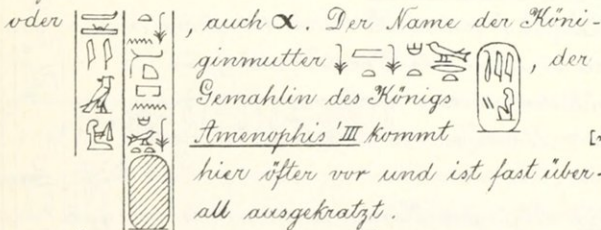 oder , auch α. Der Name der Köni-
ginmutter , der
Gemahlin des Königs
Amenophis' III kommt
hier öfter vor und ist fast über-
all ausgekratzt.